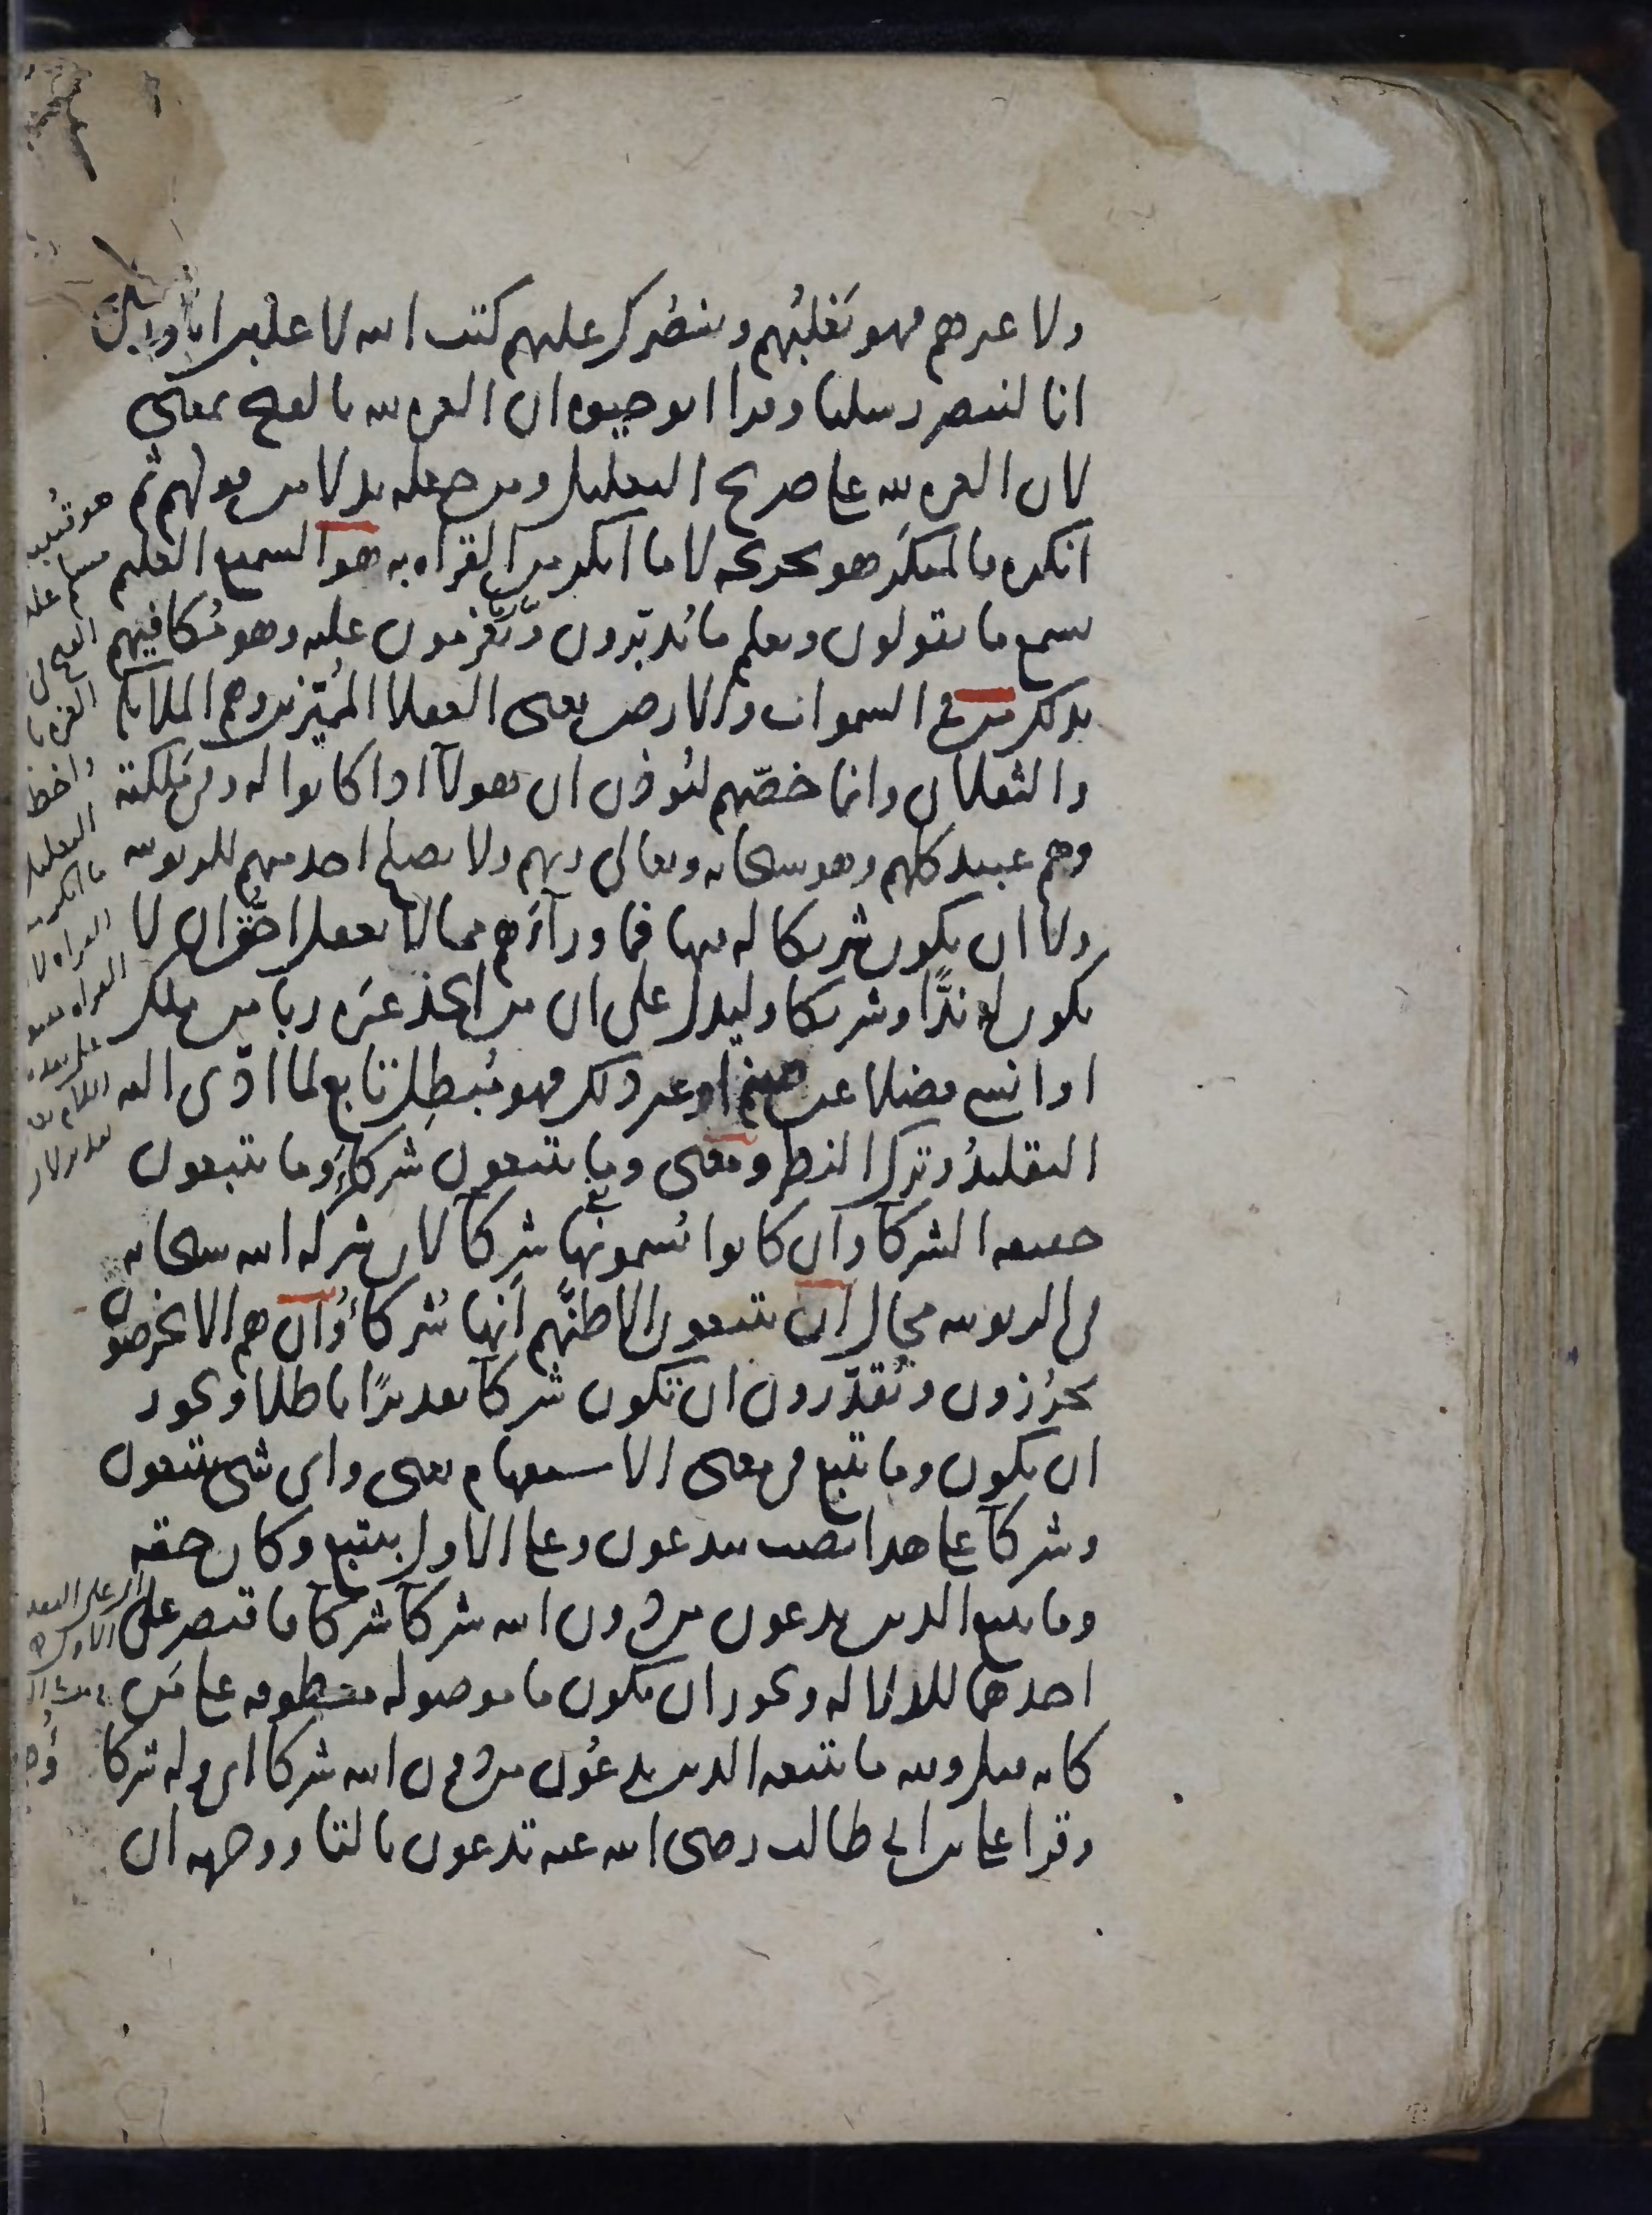 ولا غيرهم فهو يغلبهم وينصرك عليهم كتب الله لاغلبن انا ورسلي
انا لننصر رسلنا وقرا ابو حيوه ان العزه لله بالفتح بمعنى
لان العزه لله على صريح التعليل ومن جعله بدلا من قولهم ثم
انكره فالمنكر هو تخريجه لا ما انكر من القراه به هو السميع العليم
يسمع ما يقولون ويعلم ما يدبرون ويعزمون عليه وهو مكافيهم
بذلك من في السموات والارض يعنى العقلا المميزين وهم الملايكه
والثقلان وانما خصهم ليوذن ان هولآ اذا كانوا له وفى ملكته
وهم عبيد كلهم وهو سبحانه وتعالى ربهم ولا يصلح احد منهم للربوبيه
ولا ان يكون شريكا له فيها فما ورآهم مما لا يعقل احق ان لا
يكون له ندا وشريكا وليدل على ان من اتخذ غيره ربا من ملك
او انسى فضلا عن صنم او غير ذلك فهو مبطل تابع لما ادى اليه
التقليد وترك النظر ومعنى وما يتبعون شركآ وما يتبعون
حقيقه الشركآ وان كانوا يسمونها شركآ لان شركه الله سبحانه
فى الربوبيه محال ان يتبعون الا ظنهم انها شركآ وان هم الا يخرصون
يحزرون ويقدرون ان تكون شركآ تقديرا باطلا ويجوز
ان يكون وما يتبع فى معنى الاستفهام يعنى واى شى يتبعون
وشركآ على هذا نصب بيدعون وعلى الاول بيتبع وكان حقه
وما يتبع الذين يدعون من دون الله شركآ شركآ فاقتصر على
احدهما للدلاله ويجوز ان يكون ما موصوله معطوفه على من
كانه قيل ولله ما يتبعه الذين يدعون من دون الله شركا اى وله شركا
وقرا على بن ابى طالب رضى الله عنه تدعون بالتا ووجهه ان